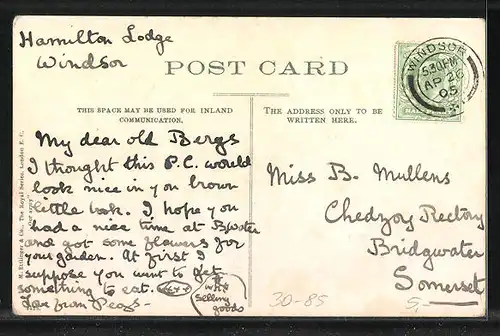 Hamilton Lodge
Windsor
POST CARD
WINDSOR
5.30PM
AP 26
05
THIS SPACE MAY BE USED FOR INLAND
COMMUNICATION.
THE ADDRESS ONLY TO BE
WRITTEN HERE.
My dear old Bergs
I thought this P.C. would
look nice in you brown
little book. I hope you
had a nice time at B/water
and got some flowers for
your garden. At first I
suppose you went to get
something to eat.
Love from Pegs-
selling
goods
Miss B. Mullens
Chedzoy Rectory
Bridgwater
Somerset
30-85
M. Ettlinger & Co., The Royal Series, London E.C.